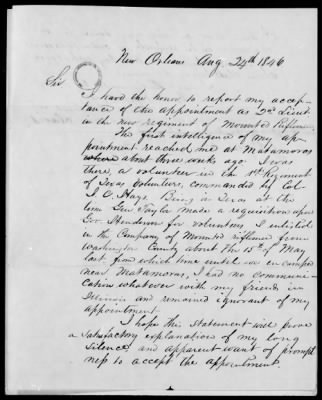 New Orleans Aug 24th 1846
Sir
I have the honor to report my accep-
tance of the appointment as 2d Lieut.
in the new regiment of Mounted Riflemen
The first intelligence of my ap-
pointment reached me at Matamoros
where about three weeks ago. I was
there, a volunteer in the 1st Regiment
of Texas Volunteers, commanded by Col.
J. C. Hays. Being in Texas at the
time Gen Taylor made a requisition upon
Gov. Henderson for volunteers I enlisted
in the Company of Mounted riflemen from
Washington County about the 15th of May
last from which time until we encamped
near Matamoros, I had no communi-
cation whatever with my friends in
Illinois and remained ignorant of my
appointment
I hope this statement will prove
a satisfactory explanation of my long
silence and apparent want of prompt
ness to accept the appointment.